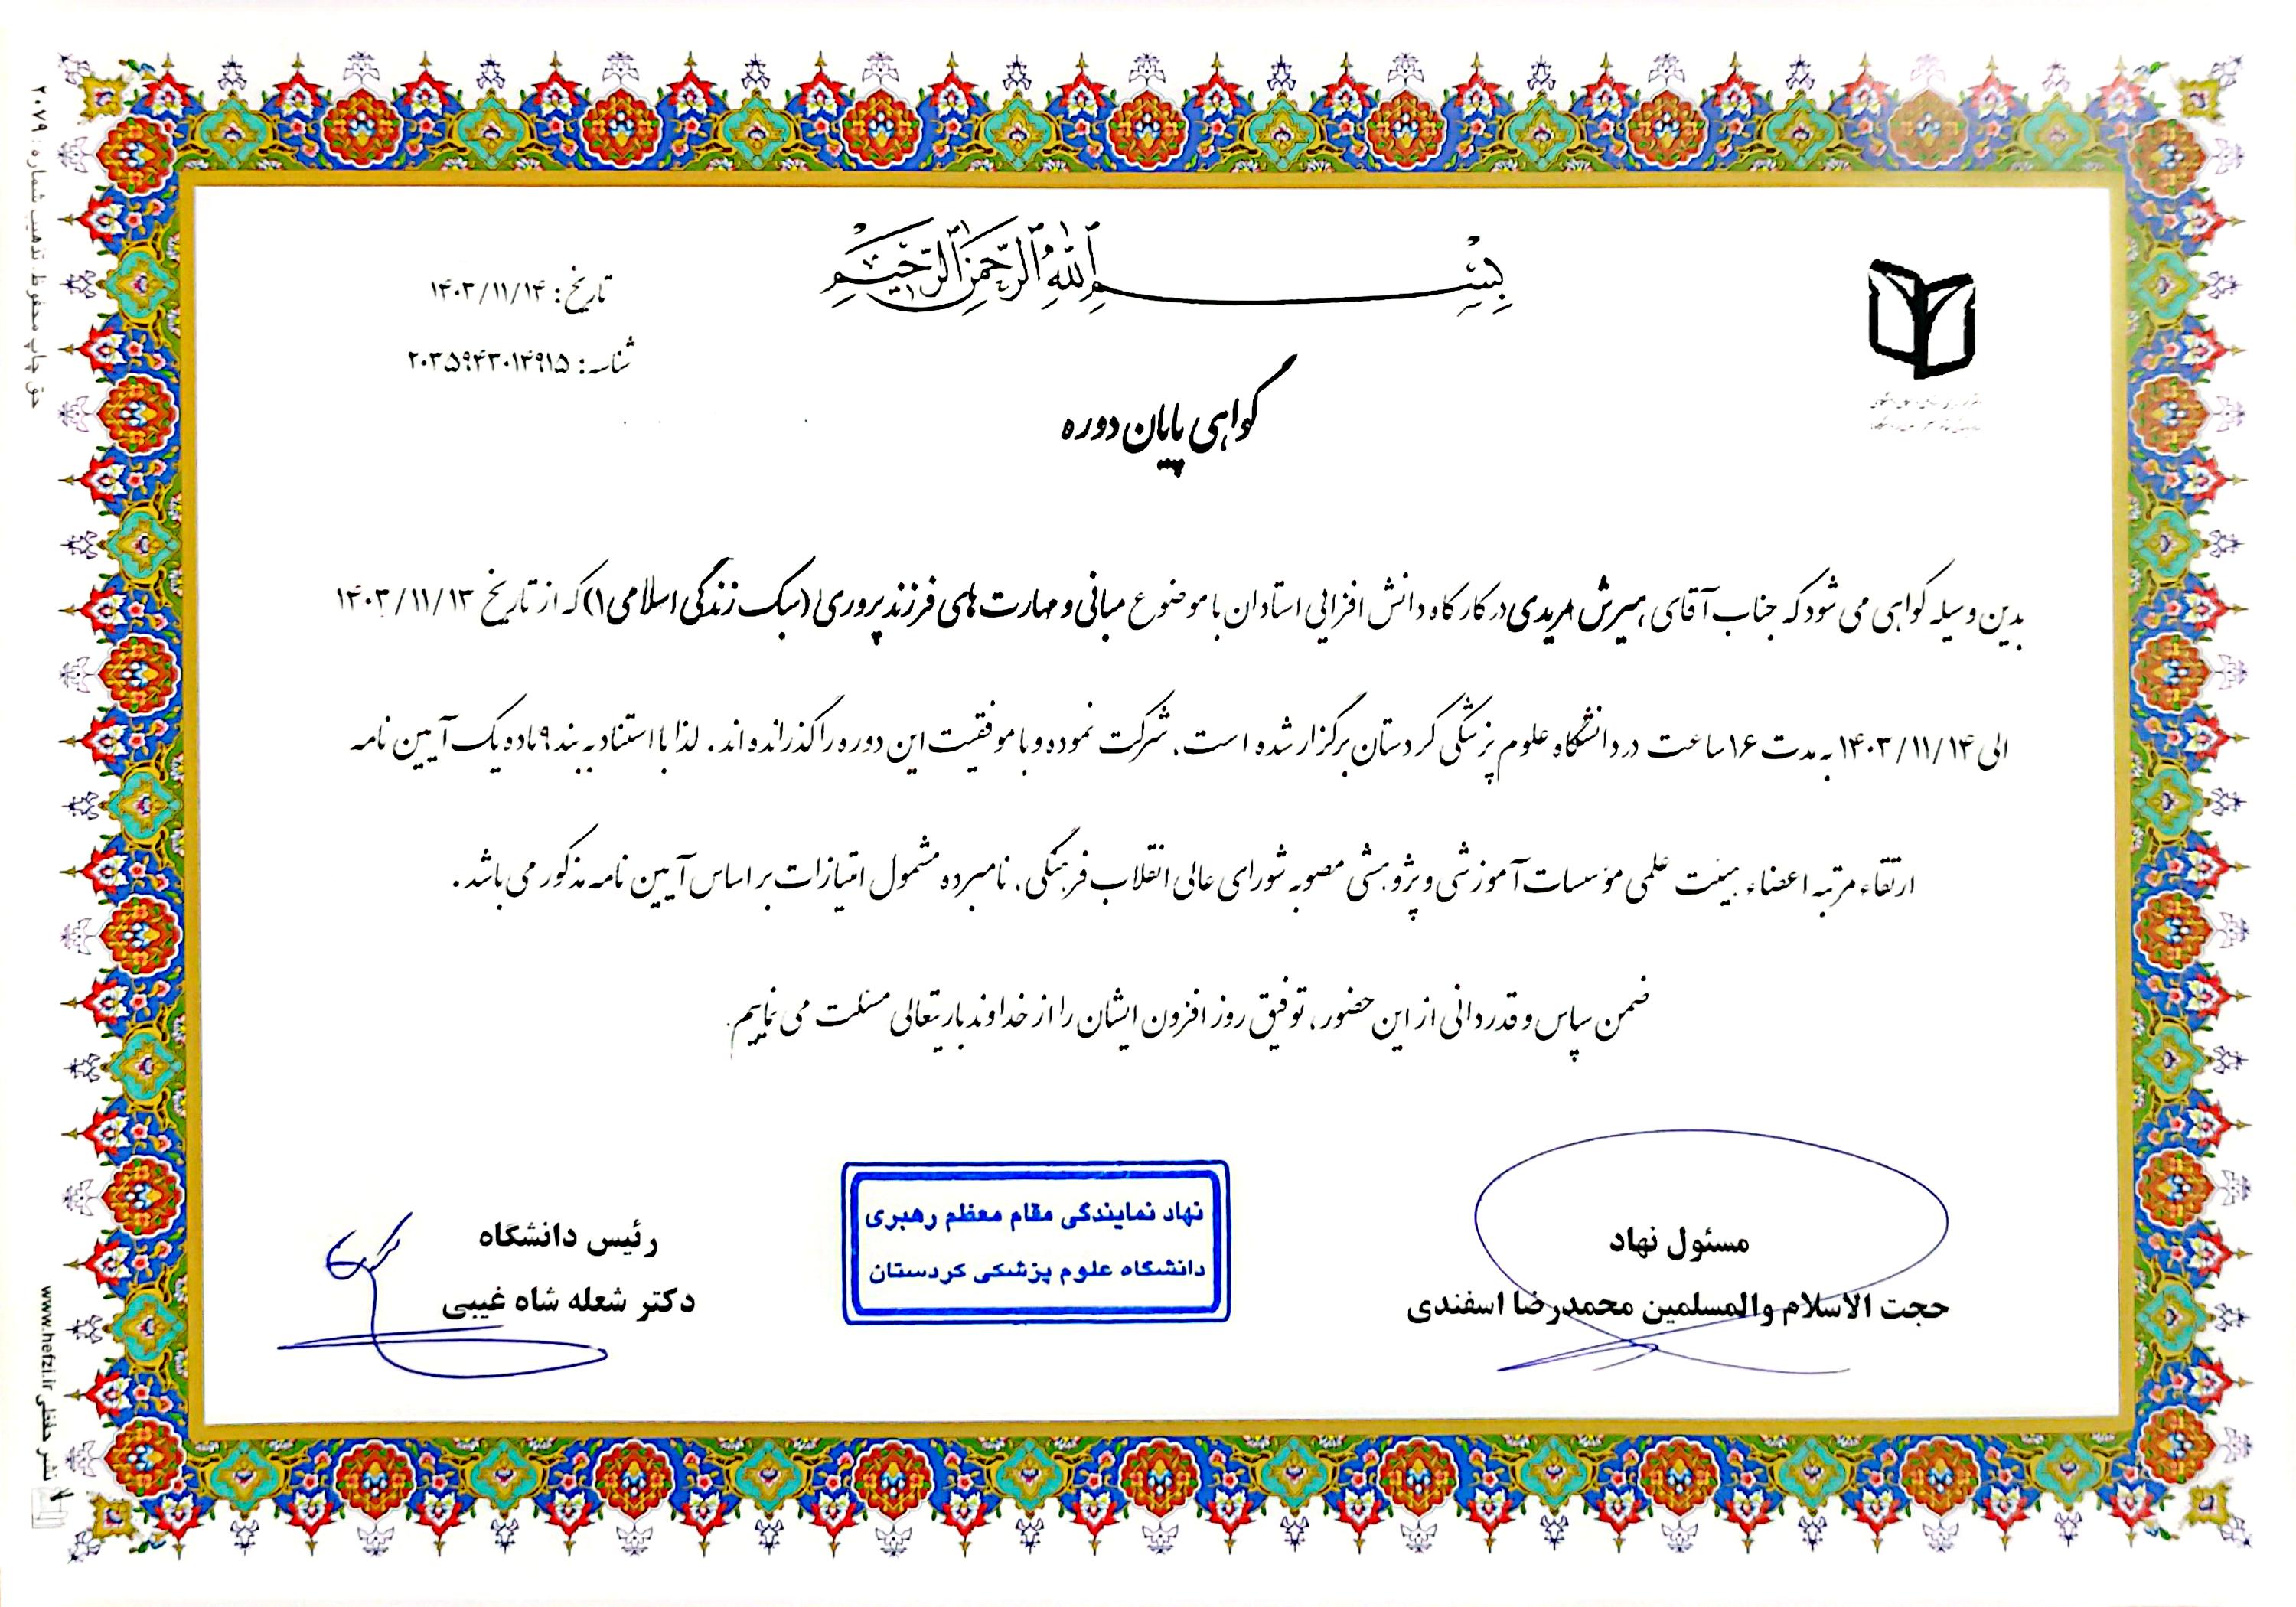 بسم الله الرحمن الرحیم
تاریخ: ۱۴۰۳/۱۱/۱۴
شناسه: ۲۰۳۵۹۴۳۰۱۴۹۱۵
گواهی پایان دوره
بدین وسیله گواهی می شود که جناب آقای هیرش مریدی در کارگاه دانش افزایی استادان با موضوع مبانی و مهارت های فرزند پروری (سبک زندگی اسلامی۱) که از تاریخ ۱۴۰۳/۱۱/۱۳
الی ۱۴۰۳/۱۱/۱۴ به مدت ۱۶ ساعت در دانشگاه علوم پزشکی کردستان برگزار شده است، شرکت نموده و با موفقیت این دوره را گذرانده اند. لذا با استناد به بند ۹ ماده یک آیین نامه
ارتقاء مرتبه اعضاء هیئت علمی مؤسسات آموزشی و پژوهشی مصوبه شورای عالی انقلاب فرهنگی، نامبرده مشمول امتیازات بر اساس آیین نامه مذکور می باشد.
ضمن سپاس و قدردانی از این حضور، توفیق روز افزون ایشان را از خداوند باریتعالی مسئلت می نماییم.
مسئول نهاد
حجت الاسلام والمسلمین محمدرضا اسفندی
نهاد نمایندگی مقام معظم رهبری
دانشگاه علوم پزشکی کردستان
رئیس دانشگاه
دکتر شعله شاه غیبی
حق چاپ محفوظ. تذهیب شماره: ۲۰۷۹
نشر حفظی www.hefzi.ir